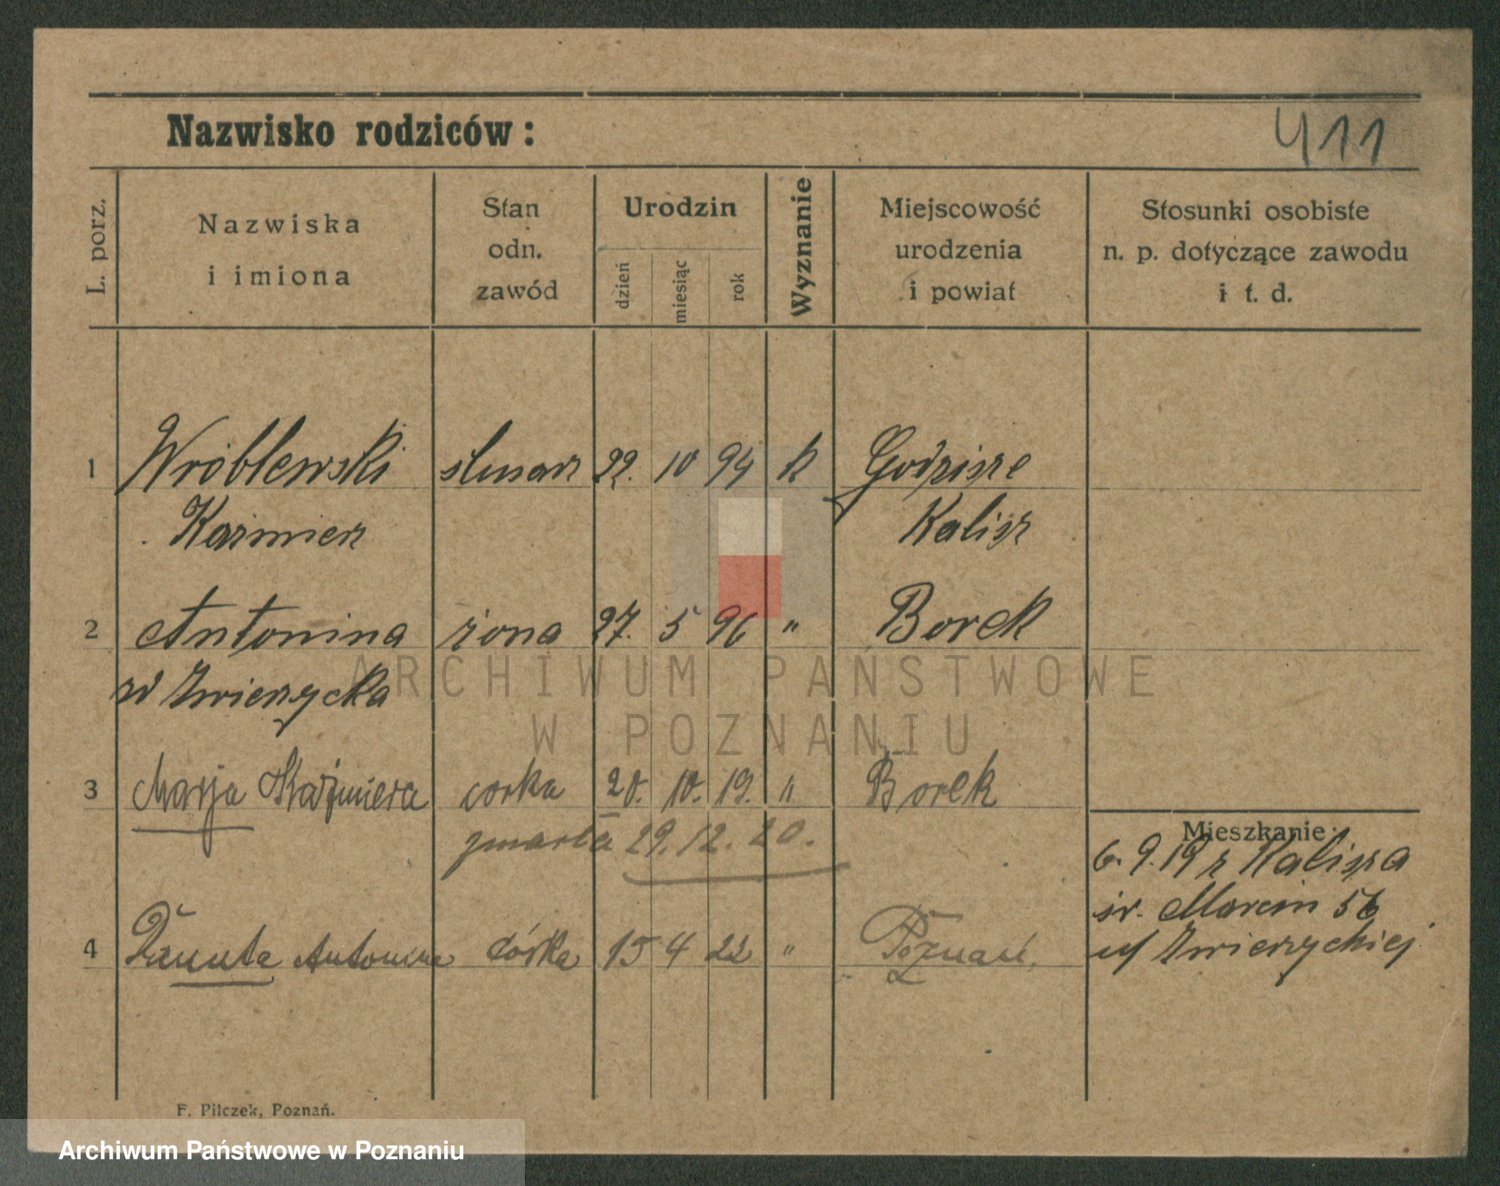 Nazwisko rodziców:
411
L. porz.
Nazwiska
i imiona
Stan
odn.
zawód
Urodzin
dzień
miesiąc
rok
Wyznanie
Miejscowość
urodzenia
i powiat
Stosunki osobiste
n. p. dotyczące zawodu
i t. d.
1 Wróblewski ślusarz 22. 10 94 k Godzisze
Kazimierz Kalisz
2 Antonina żona 27. 5 96 " Borek
zd Zwierzycka
3 Marja Kaźmiera corka 20. 10. 19. " Borek
zmarła 29. 12. 20.
Mieszkanie:
6. 9. 19 z Kalisza
św. Marcin 56
u/ Zwierzyckiej
4 Danuta Antonina córka 15 4 22 " Poznań.
F. Pilczek, Poznań.
ARCHIWUM PAŃSTWOWE
W POZNANIU
Archiwum Państwowe w Poznaniu